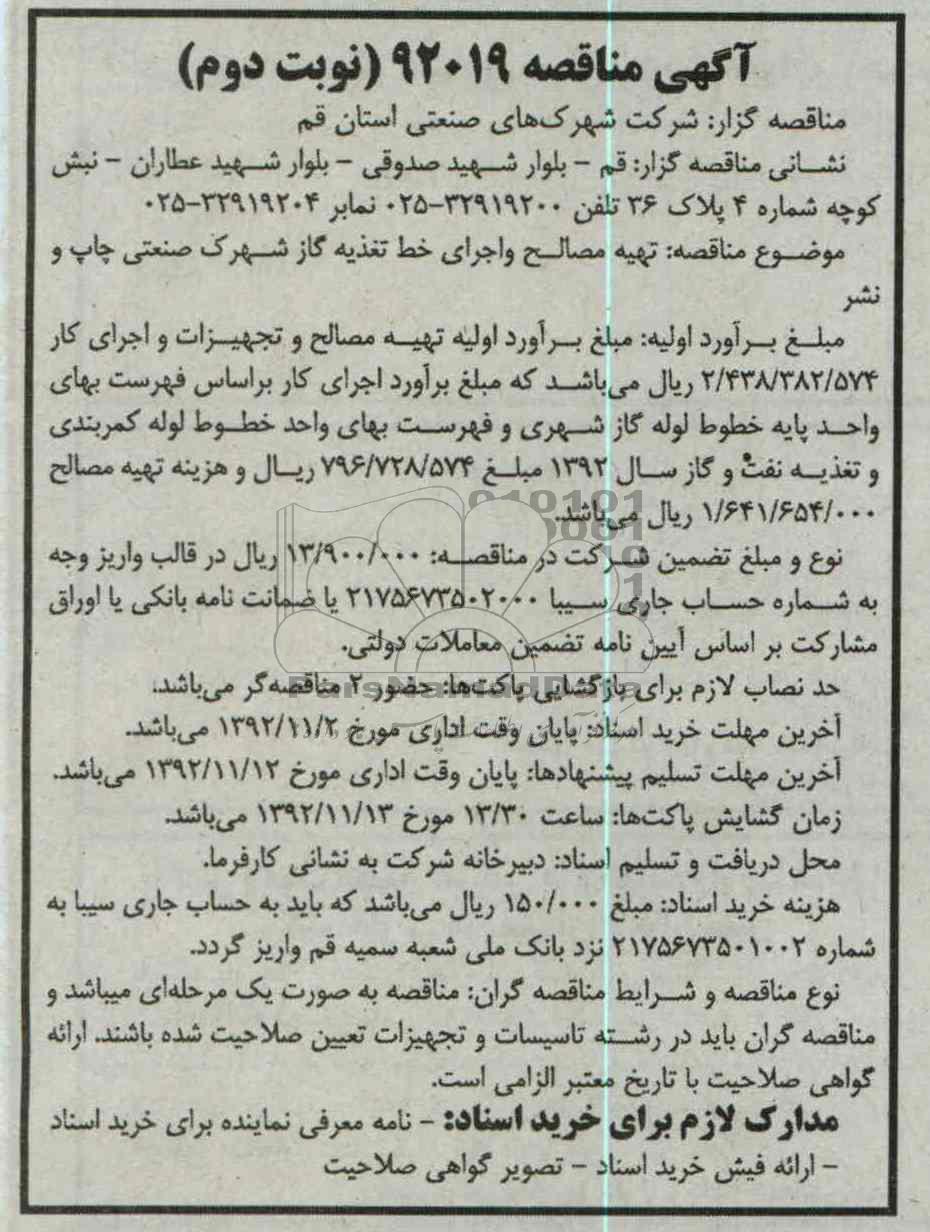 آگهی مناقصه ۹۲۰۱۹ (نوبت دوم)
مناقصه گزار: شرکت شهرک‌های صنعتی استان قم
نشانی مناقصه گزار: قم - بلوار شهید صدوقی - بلوار شهید عطاران - نبش
کوچه شماره ۴ پلاک ۳۶ تلفن ۳۲۹۱۹۲۰۰-۰۲۵ نمابر ۳۲۹۱۹۲۰۴-۰۲۵
موضوع مناقصه: تهیه مصالح واجرای خط تغذیه گاز شهرک صنعتی چاپ و
نشر
مبلغ برآورد اولیه: مبلغ برآورد اولیه تهیه مصالح و تجهیزات و اجرای کار
۲/۴۳۸/۳۸۲/۵۷۴ ریال می‌باشد که مبلغ برآورد اجرای کار براساس فهرست بهای
واحد پایه خطوط لوله گاز شهری و فهرست بهای واحد خطوط لوله کمربندی
و تغذیه نفت و گاز سال ۱۳۹۲ مبلغ ۷۹۶/۷۲۸/۵۷۴ ریال و هزینه تهیه مصالح
۱/۶۴۱/۶۵۴/۰۰۰ ریال می‌باشد.
نوع و مبلغ تضمین شرکت در مناقصه: ۱۳/۹۰۰/۰۰۰ ریال در قالب واریز وجه
به شماره حساب جاری سیبا ۲۱۷۵۶۷۳۵۰۲۰۰۰ یا ضمانت نامه بانکی یا اوراق
مشارکت بر اساس آیین نامه تضمین معاملات دولتی.
حد نصاب لازم برای بازگشایی پاکت‌ها: حضور ۲ مناقصه‌گر می‌باشد.
آخرین مهلت خرید اسناد: پایان وقت اداری مورخ ۱۳۹۲/۱۱/۲ می‌باشد.
آخرین مهلت تسلیم پیشنهادها: پایان وقت اداری مورخ ۱۳۹۲/۱۱/۱۲ می‌باشد.
زمان گشایش پاکت‌ها: ساعت ۱۳/۳۰ مورخ ۱۳۹۲/۱۱/۱۳ می‌باشد.
محل دریافت و تسلیم اسناد: دبیرخانه شرکت به نشانی کارفرما.
هزینه خرید اسناد: مبلغ ۱۵۰/۰۰۰ ریال می‌باشد که باید به حساب جاری سیبا به
شماره ۲۱۷۵۶۷۳۵۰۱۰۰۲ نزد بانک ملی شعبه سمیه قم واریز گردد.
نوع مناقصه و شرایط مناقصه گران: مناقصه به صورت یک مرحله‌ای میباشد و
مناقصه گران باید در رشته تاسیسات و تجهیزات تعیین صلاحیت شده باشند. ارائه
گواهی صلاحیت با تاریخ معتبر الزامی است.
مدارک لازم برای خرید اسناد: - نامه معرفی نماینده برای خرید اسناد
- ارائه فیش خرید اسناد - تصویر گواهی صلاحیت